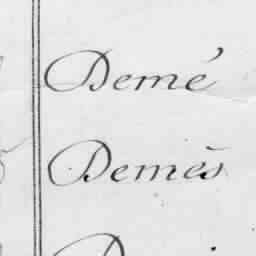 Demé
Demés